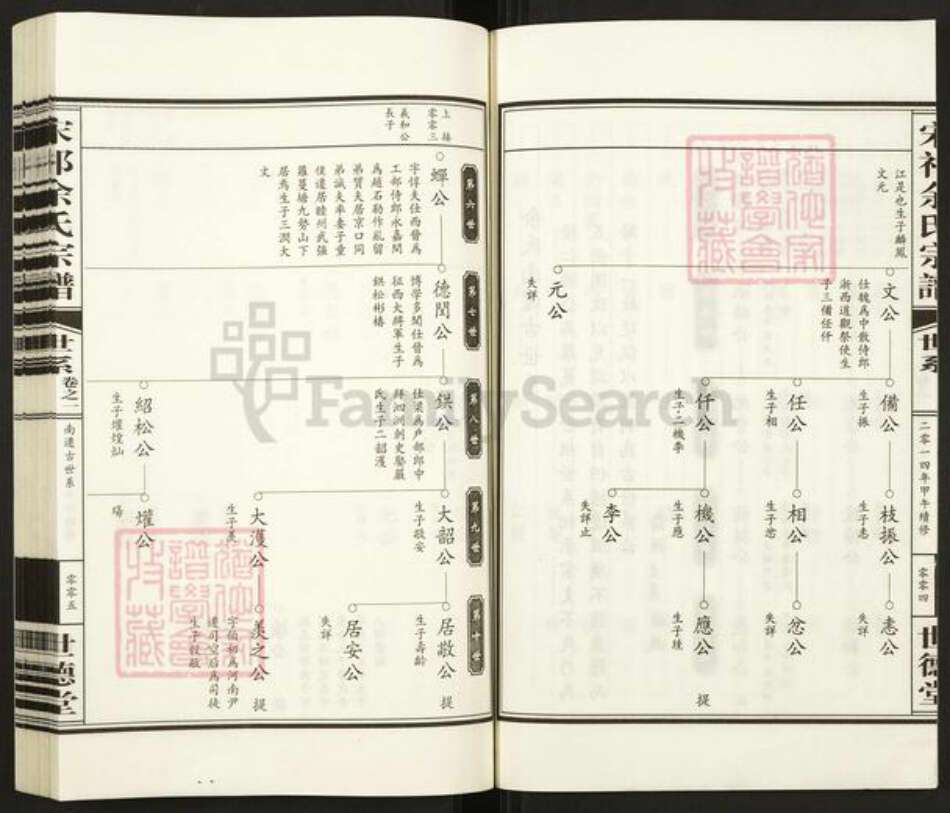 江是也生子麟鳳
文元
文公
仕魏爲中散侍郎
浙西道觀祭使生
子三備任仟
元公
失詳
備公
生子振
任公
生子相
仟公
生子二機李
枝振公
生子恚
相公
生子忿
機公
生子應
李公
失詳止
恚公
失詳
忿公
失詳
應公
生子瑾
提
二零一四年甲午續修
零零四
世德堂
上接
零零三
義和公
長子
第六世
蟬公
字惇夫仕西晉爲
工部侍郎永嘉間
爲趙石勒作亂留
弟質夫居京口同
弟誠夫率妻子童
僕遷居睦州武強
羅蔓塘九勢山下
居焉生子三潤大
文
第七世
德閏公
博學多聞仕晉爲
征西大將軍生子
鉷松彬椿
第八世
鉷公
仕梁爲戶部郎中
拜泗洲刺史娶嚴
氏生子二韶濩
紹松公
生子㸌煌灿
第九世
大韶公
生子敬安
大濩公
生子羨
㸌公
瑒
第十世
居敬公
生子壽齡
提
居安公
失詳
羨之公
字伯初爲河南尹
遷司空后爲司徒
生子毅敬
提
余氏宗譜
世系
卷之一
南遷古世系
零零五
世德堂
FamilySearch
譜學會
收藏